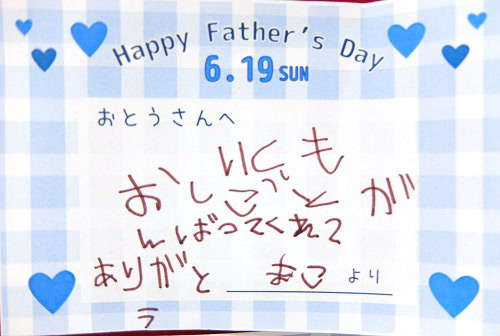 Happy Father's Day
6.19 SUN
おとうさんへ
いつも
おしごとが
んばってくれて
ありがと
う
より